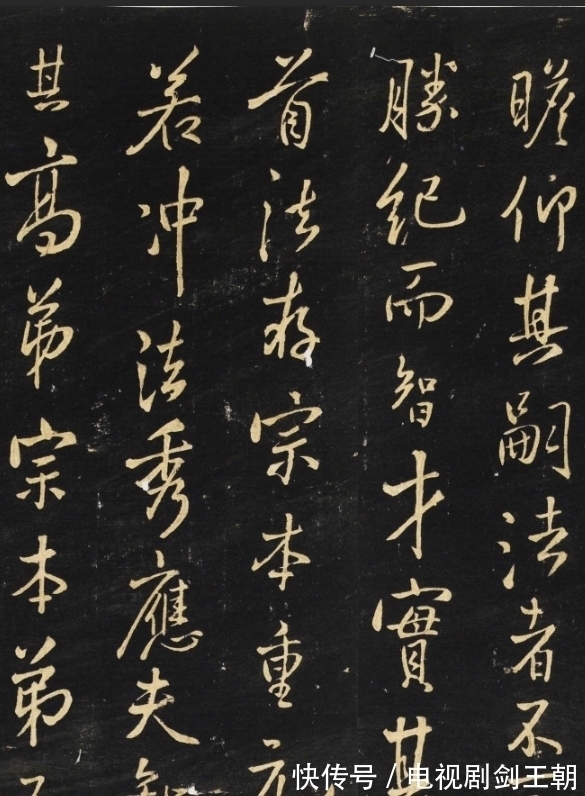 瞻仰其嗣法者不
勝紀而智才實其
首法存宗本重
若冲法秀應夫
其高弟宗本弟
快传号 / 电视剧剑王朝